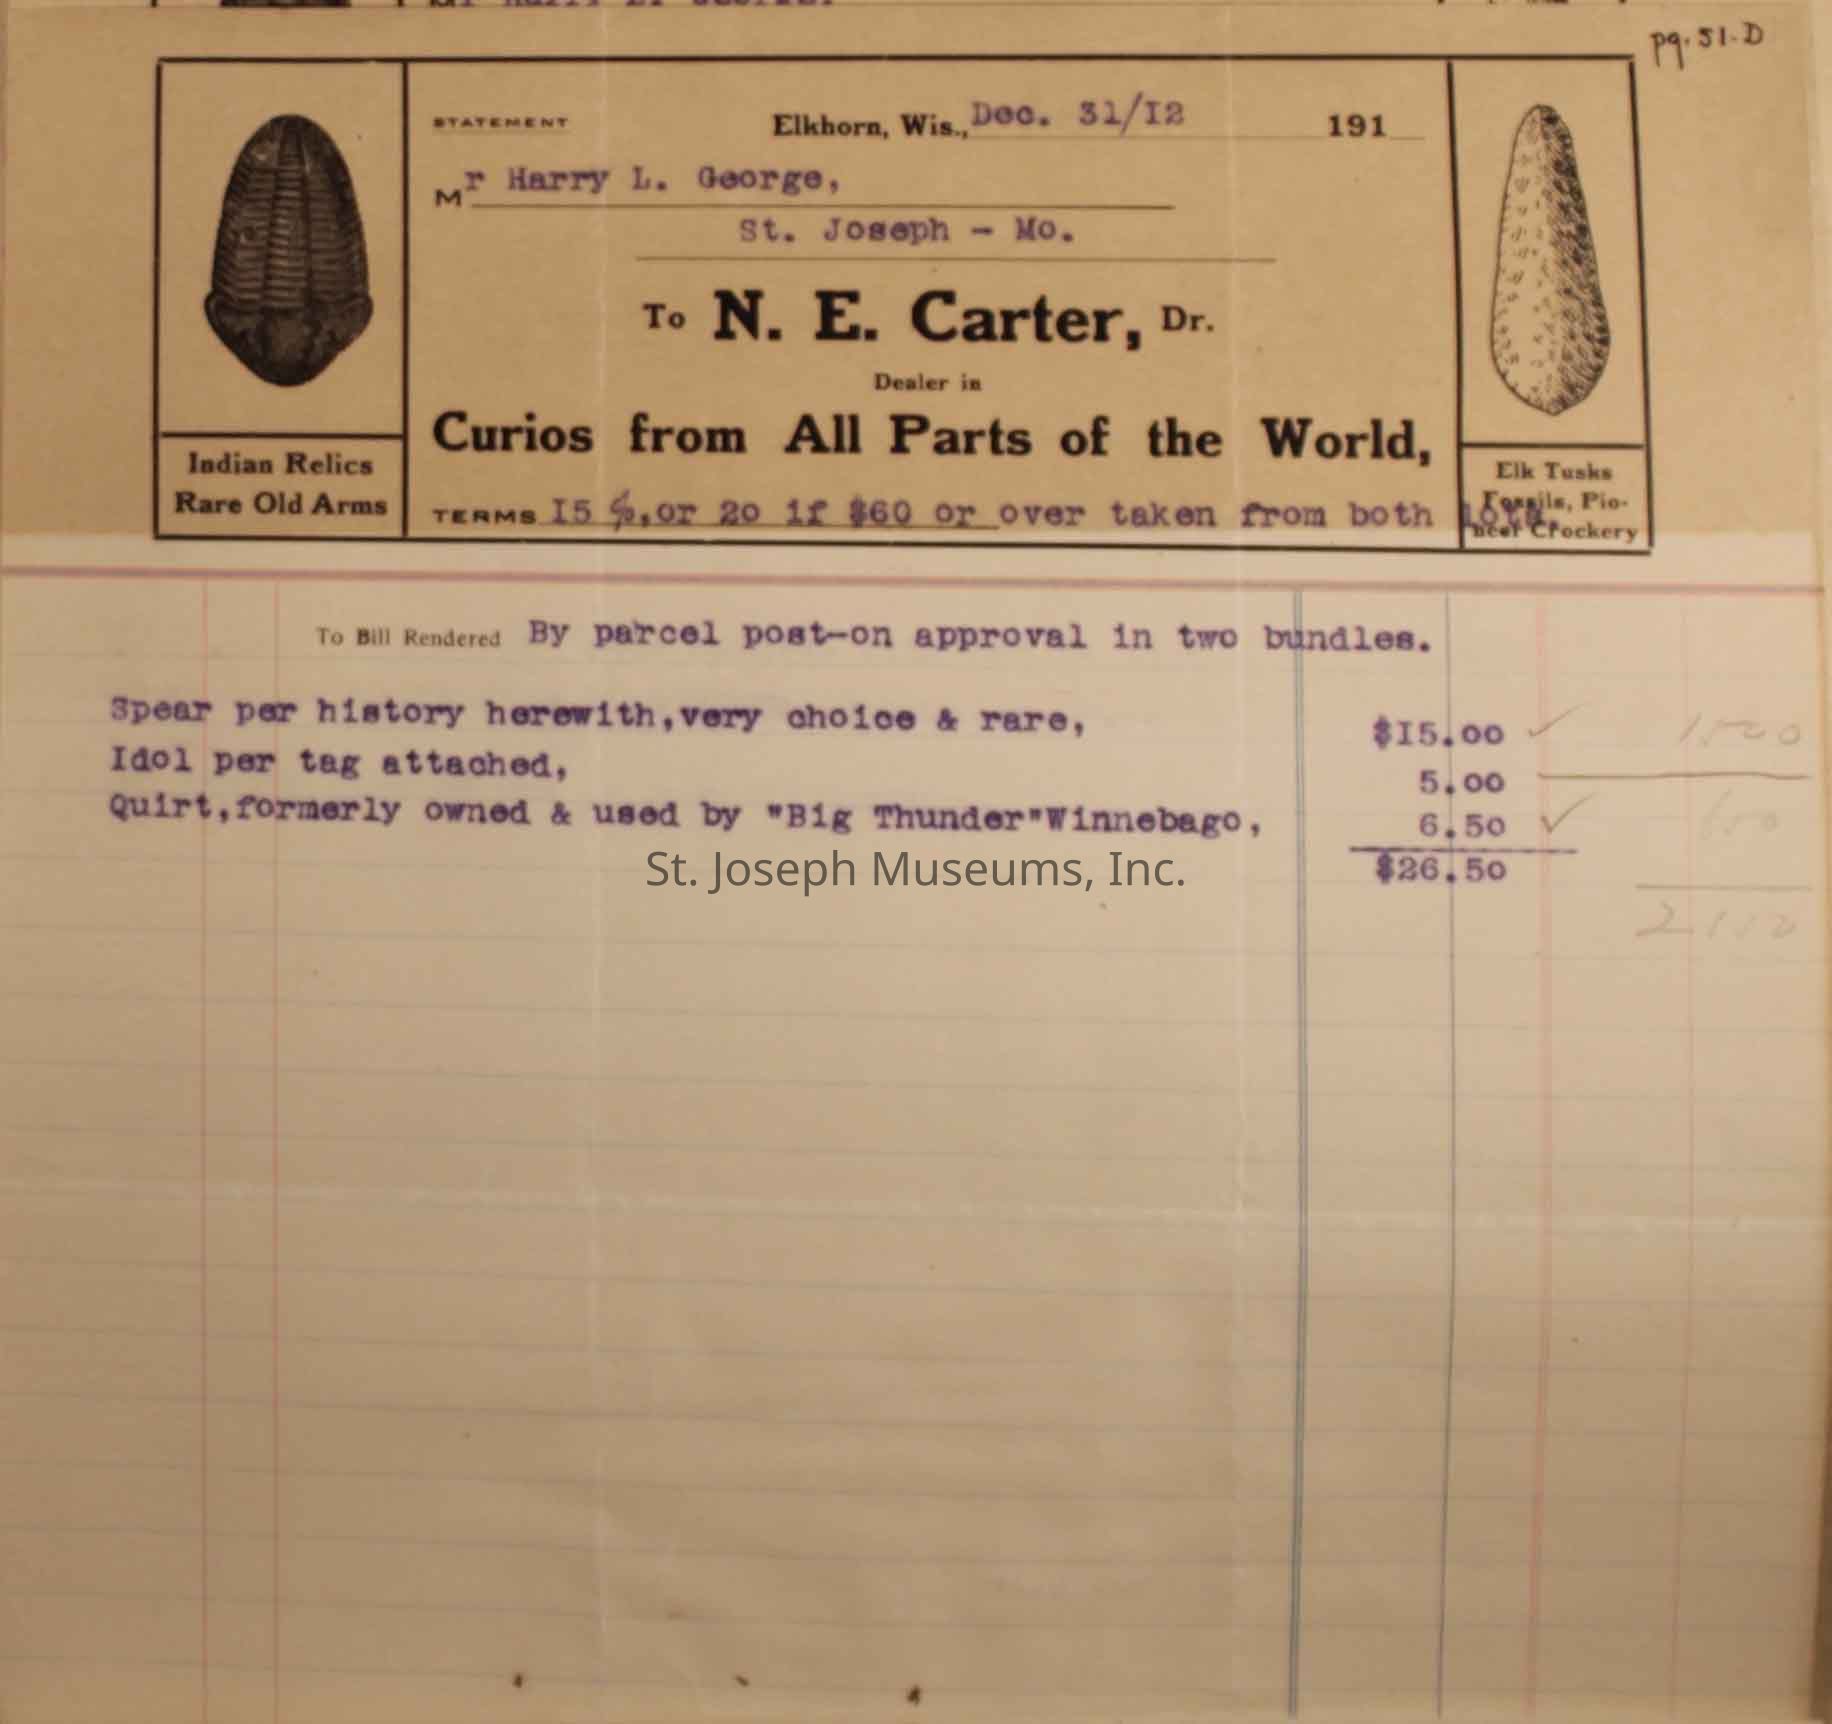 pg. 51-D
STATEMENT
Elkhorn, Wis., Dec. 31/I2 191
Mr Harry L. George,
St. Joseph - Mo.
To N. E. Carter, Dr.
Dealer in
Curios from All Parts of the World,
TERMS I5 %,or 20 if $60 or over taken from both lots.
Indian Relics
Rare Old Arms
Elk Tusks
Fossils, Pio-
neer Crockery
To Bill Rendered By parcel post-on approval in two bundles.
Spear per history herewith,very choice & rare, $I5.00 1500
Idol per tag attached, 5.00
Quirt,formerly owned & used by "Big Thunder"Winnebago, 6.50 650
$26.50
St. Joseph Museums, Inc.